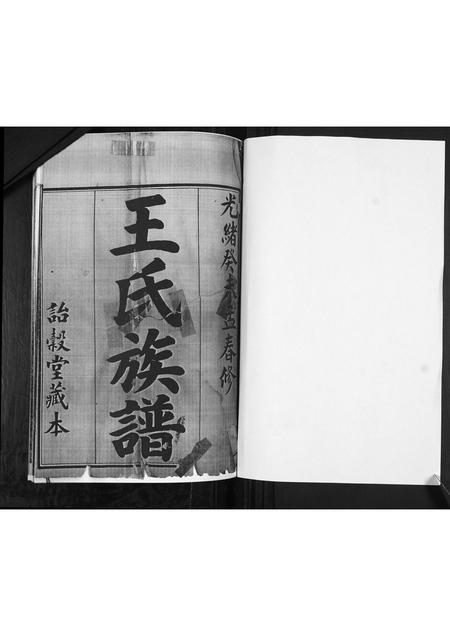 光緒癸未孟春修
王氏族譜
詒穀堂藏本